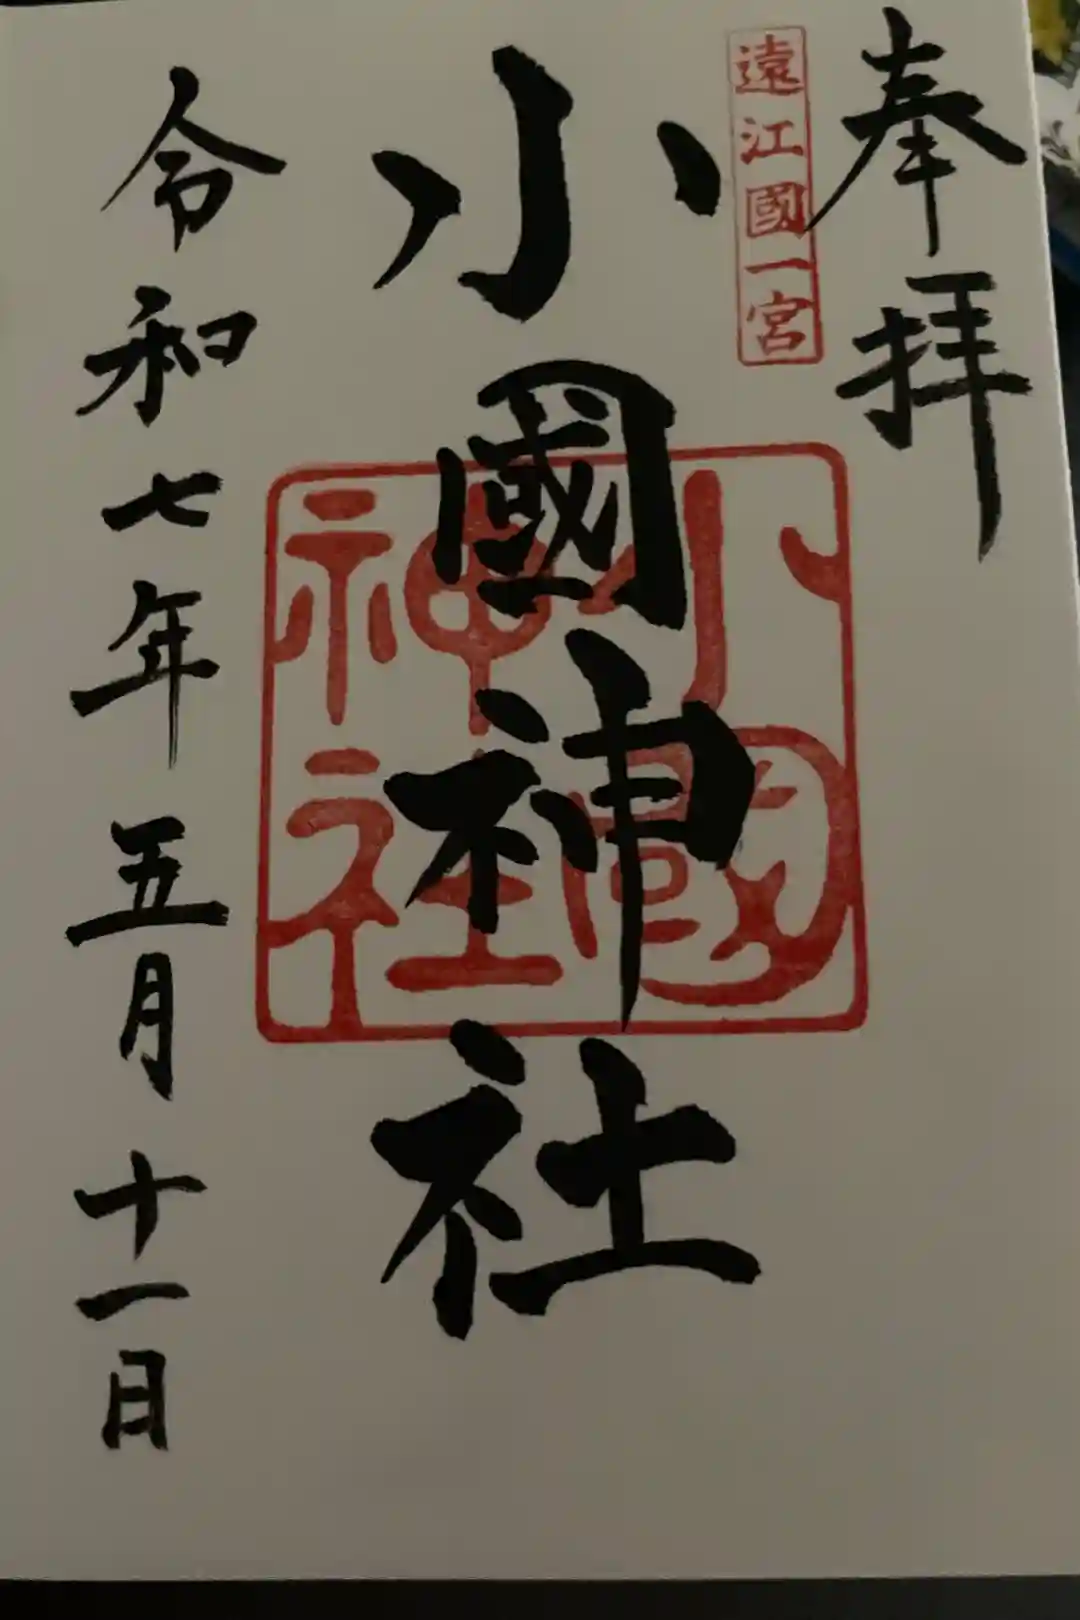 奉拝
遠江國一宮
小國神社
小國
神社
令和七年五月十一日